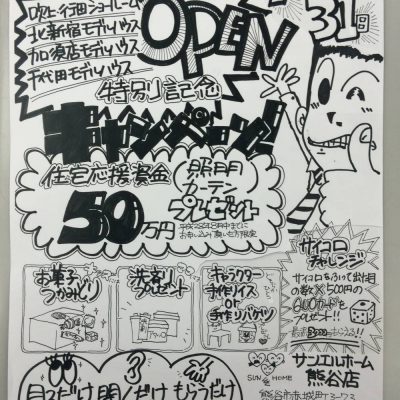 吹上・行田ショールーム
北新宿モデルハウス
加須店モデルハウス
千代田モデルハウス
OPEN
31日
特別記念
キャンペーン!
住宅応援資金
50万円
照明
カーテン
プレゼント
平成28年8月中までに
サイコロ
チャレンジ
サイコロをふって出た目
の数×500円の
QUOカードを
プレゼント!!
最高3000円もらえる!!
お菓子
つかみどり
プレゼント
キャラクター
手作りイス
or
手作りバケツ
見るだけ 聞くだけ もらうだけ
SUN愛HOME
サンエルホーム
熊谷店
熊谷市赤城町1-3-73